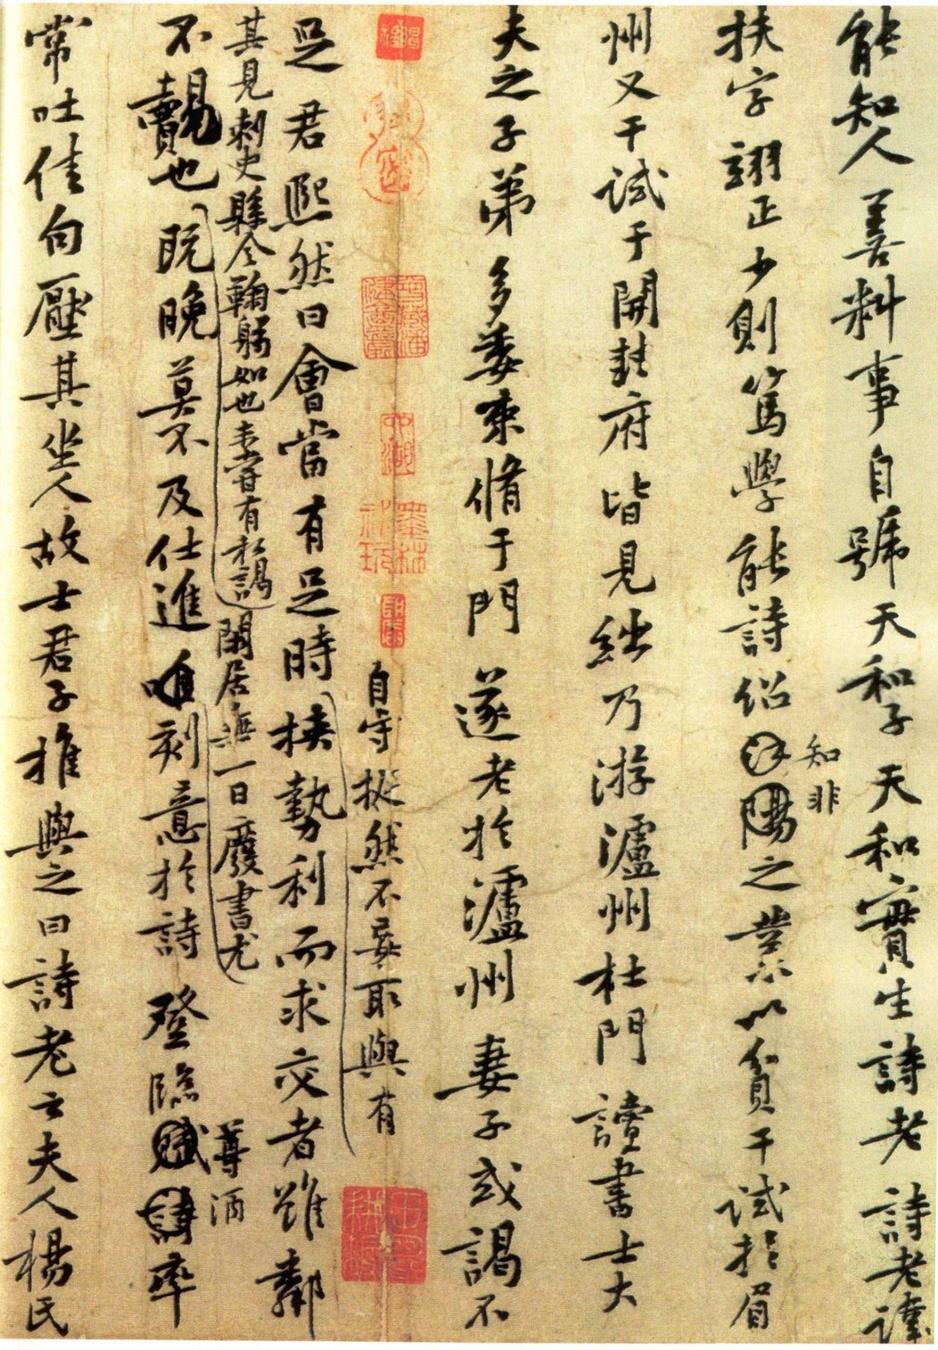 能知人善料事自號天和子天和實生詩老詩老諱
知非
扶字翊正少則篤學能詩紹江陽之業以貧干試於眉
州又干試于開封府皆見絀乃游瀘州杜門讀書士大
夫之子弟多委束脩于門遂老於瀘州妻子或謂不
自守挺然不妄取與有
足君熙然曰會當有足時挾勢利而求交者雖鄰
其見刺史縣令鞠躬如也未嘗有私謁閑居無一日廢書尤
尊酒
不覿也既晚莫不及仕進唯刻意於詩登臨賦詩率
常吐佳句壓其坐人故士君子推與之曰詩老云夫人楊氏